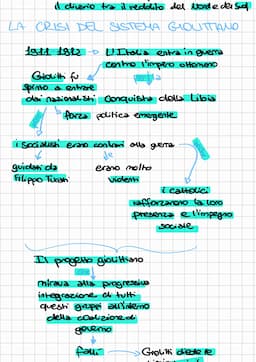 il divario tra il reddito del Nord e del Sud
LA CRISI DEL SISTEMA GIOLITTIANO
1911 1912 → L'Italia entra in guerra
contro l'impero ottomano
Giolitti fu
spinto a entrare
dai nazionalisti conquista della Libia
forza politica emergente
i socialisti erano contrari alla guerra
guidati da erano molto
Filippo Turati violenti
i cattolici
rafforzarono la loro
presenza e l'impegno
sociale
Il progetto giolittiano
mirava alla progressiva
integrazione di tutti
questi gruppi all'interno
della coalizione di
governo
fallì → Giolitti diede le